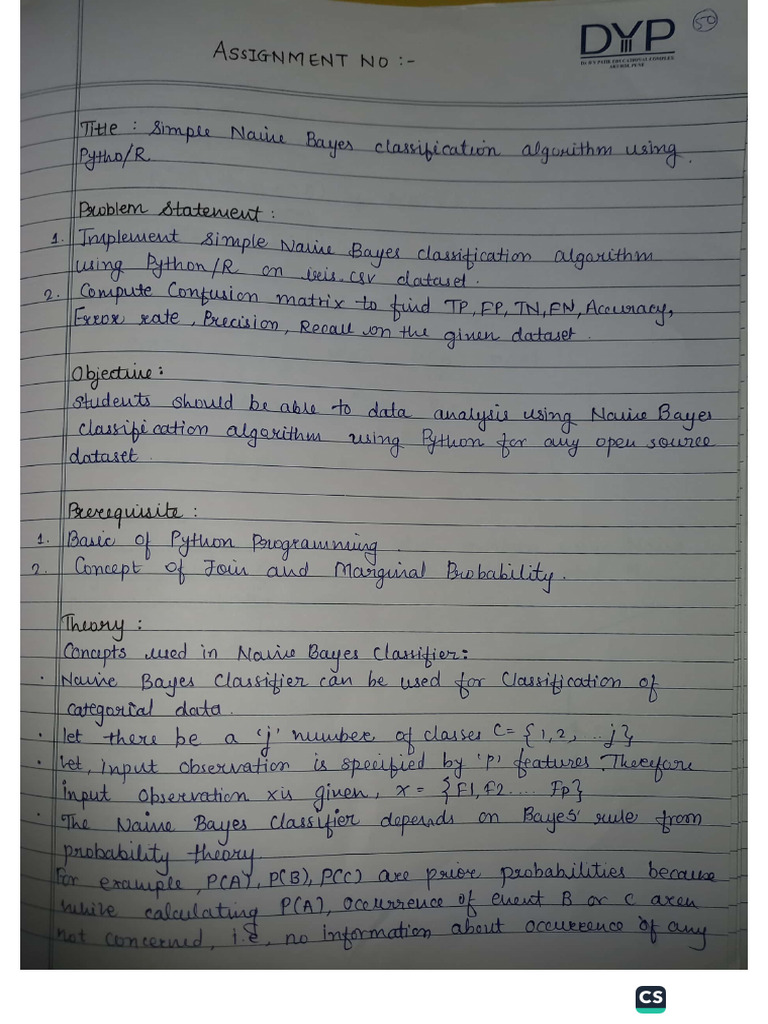 50
DYP
DR D Y PATIL EDUCATIONAL COMPLEX
AKURDI, PUNE
ASSIGNMENT NO :-
Title : Simple Naive Bayes classification algorithm using
Pytho/R.
Problem Statement :
1. Implement simple Naive Bayes classification algorithm
using Python/R on iris.csv dataset.
2. Compute Confusion matrix to find TP, FP, TN, FN, Accuracy,
Error rate, Precision, Recall on the given dataset.
Objective :
Students should be able to data analysis using Naive Bayes
classification algorithm using Python for any open source
dataset.
Prerequisite :
1. Basic of Python Programming.
2. Concept of Join and Marginal Probability.
Theory :
Concepts used in Naive Bayes Classifier:
· Naive Bayes Classifier can be used for Classification of
categorial data.
· let there be a 'j' number of classes C = {1, 2, ... j}
· Let, input observation is specified by 'P' features. Therefore
input observation x is given, x = {F1, F2 .... Fp}
· The Naive Bayes Classifier depends on Bayes' rule from
probability theory.
For example, P(A), P(B), P(C) are prior probabilities because
while calculating P(A), occurrence of event B or C are
not concerned, i.e, no information about occurrence of any
CS